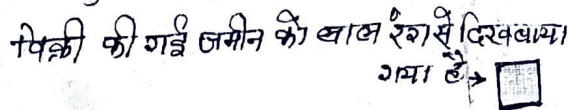 विक्री की गई जमीन को लाल रंग से दिखलाया
गया है→